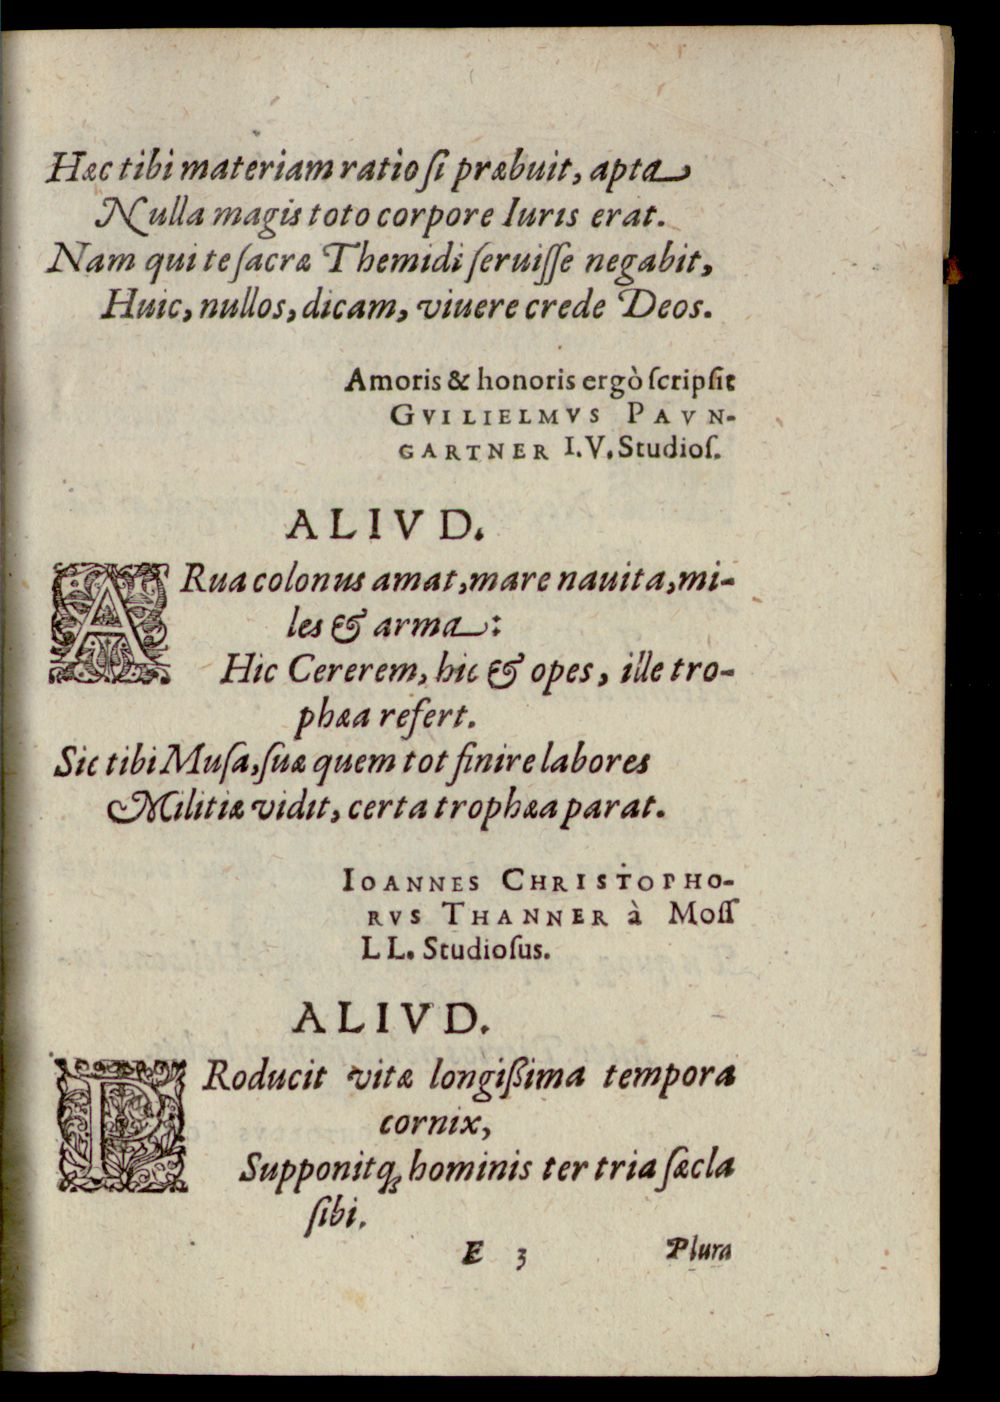 Hæc tibi materiam ratio ſi præbuit, apta
Nulla magis toto corpore Iuris erat.
Nam qui te ſacræ Themidi ſeruiſſe negabit,
Huic, nullos, dicam, viuere crede Deos.
Amoris & honoris ergò ſcripſit
GVILIELMVS PAVN-
GARTNER I.V. Studioſ.
ALIVD.
ARua colonus amat, mare nauita, mi-
les & arma:
Hic Cererem, hic & opes, ille tro-
phæa refert.
Sic tibi Muſa, ſuæ quem tot finire labores
Militiæ vidit, certa trophæa parat.
IOANNES CHRISTOPHO-
RVS THANNER à Moſſ
LL. Studioſus.
ALIVD.
PRoducit vitæ longißima tempora
cornix,
Supponitq; hominis ter tria ſæcla
ſibi.
E 3 Plura